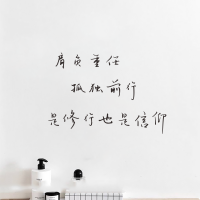 肩负重任
孤独前行
是修行也是信仰